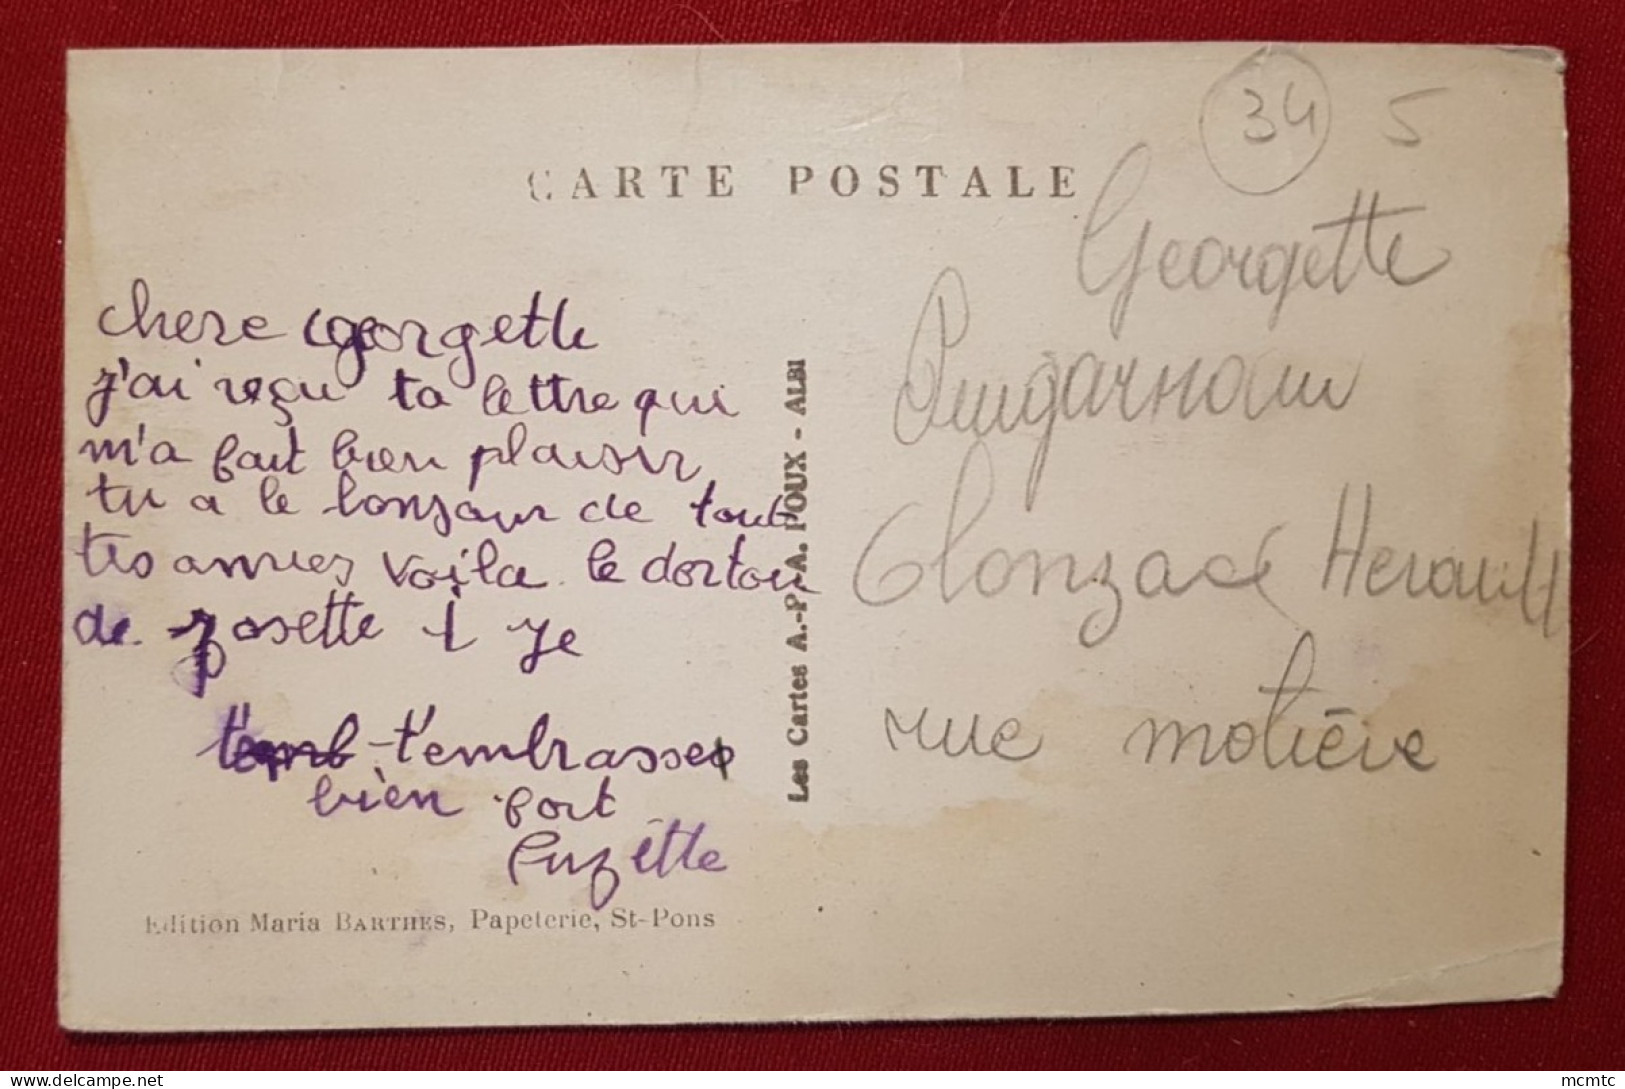 CARTE POSTALE
34 5
chere georgette
j'ai reçu ta lettre qui
m'a fait bien plaisir
tu a le bonjour de tout
tes amies voila le dortou
de josette + je
t'emb t'embrasse
bien fort
Suzette
Edition Maria BARTHES, Papeterie, St-Pons
Les Cartes A.-P. - A. POUX - ALBI
Georgette
Olonzac Herault
rue molière
mcmtc